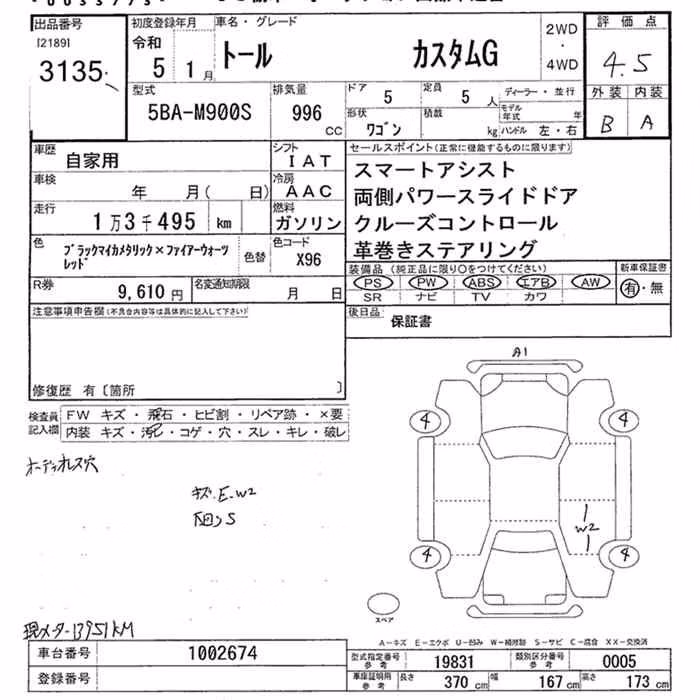 出品番号
[2189]
3135
初度登録年月
令和
5 1月
車名・グレード
トール カスタムG
2WD
・
4WD
評価点
4.5
外装 内装
B A
型式
5BA-M900S
排気量
996
CC
ドア
5
定員
5 人
形状
ワゴン
積載
kg
ディーラー・並行
モデル年式 年
ハンドル 左・右
車歴
自家用
シフト
IAT
車検
年 月( 日)
冷房
AAC
走行
1万3千495 km
燃料
ガソリン
色
ブラックマイカメタリック×ファイアークォーツ
レッド
色替
色コード
X96
R券
9,610 円
名変通知期限
月 日
セールスポイント(正常に機能するものに限ります)
スマートアシスト
両側パワースライドドア
クルーズコントロール
革巻きステアリング
装備品(純正品に限り○をつけてください)
新車保証書
PS PW ABS エアB AW
有・無
SR ナビ TV カワ
後日品
保証書
注意事項申告欄(不具合内容等は具体的に記入して下さい)
修復歴 有〔箇所 〕
検査員
記入欄
FW キズ・飛石・ヒビ割・リペア跡・×要
内装 キズ・汚レ・コゲ・穴・スレ・キレ・破レ
オーディオレス穴
キズ.E.W2
凹S
A1
4 4
W2
4 4
スペア
現メーター13951KM
A-キズ E-エクボ U-凹み W-補修跡 S-サビ C-腐食 XX-交換済
車台番号
1002674
登録番号
型式指定番号
参考
19831
類別区分番号
参考
0005
車庫証明用
参考
長さ 370 cm 幅 167 cm 高さ 173 cm